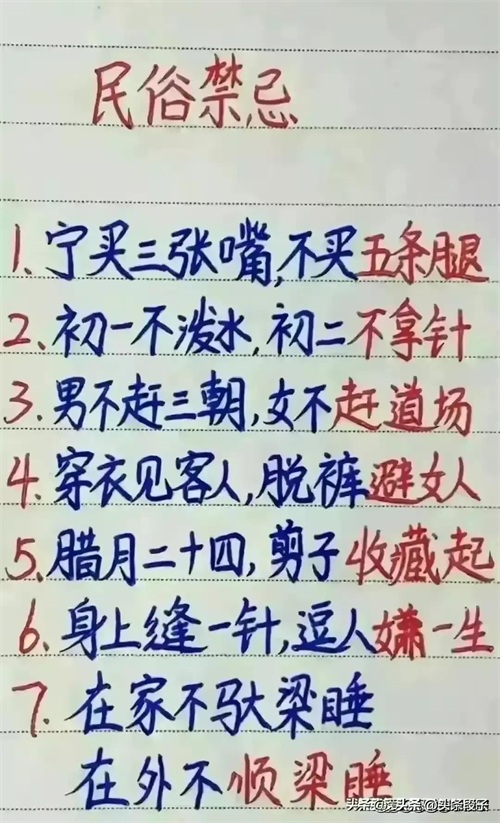 民俗禁忌
1、宁买三张嘴,不买五条腿
2、初一不泼水,初二不拿针
3、男不赶三朝,女不赶道场
4、穿衣见客人,脱裤避女人
5、腊月二十四,剪子收藏起
6、身上缝一针,逗人嫌一生
7、在家不驮梁睡
在外不顺梁睡